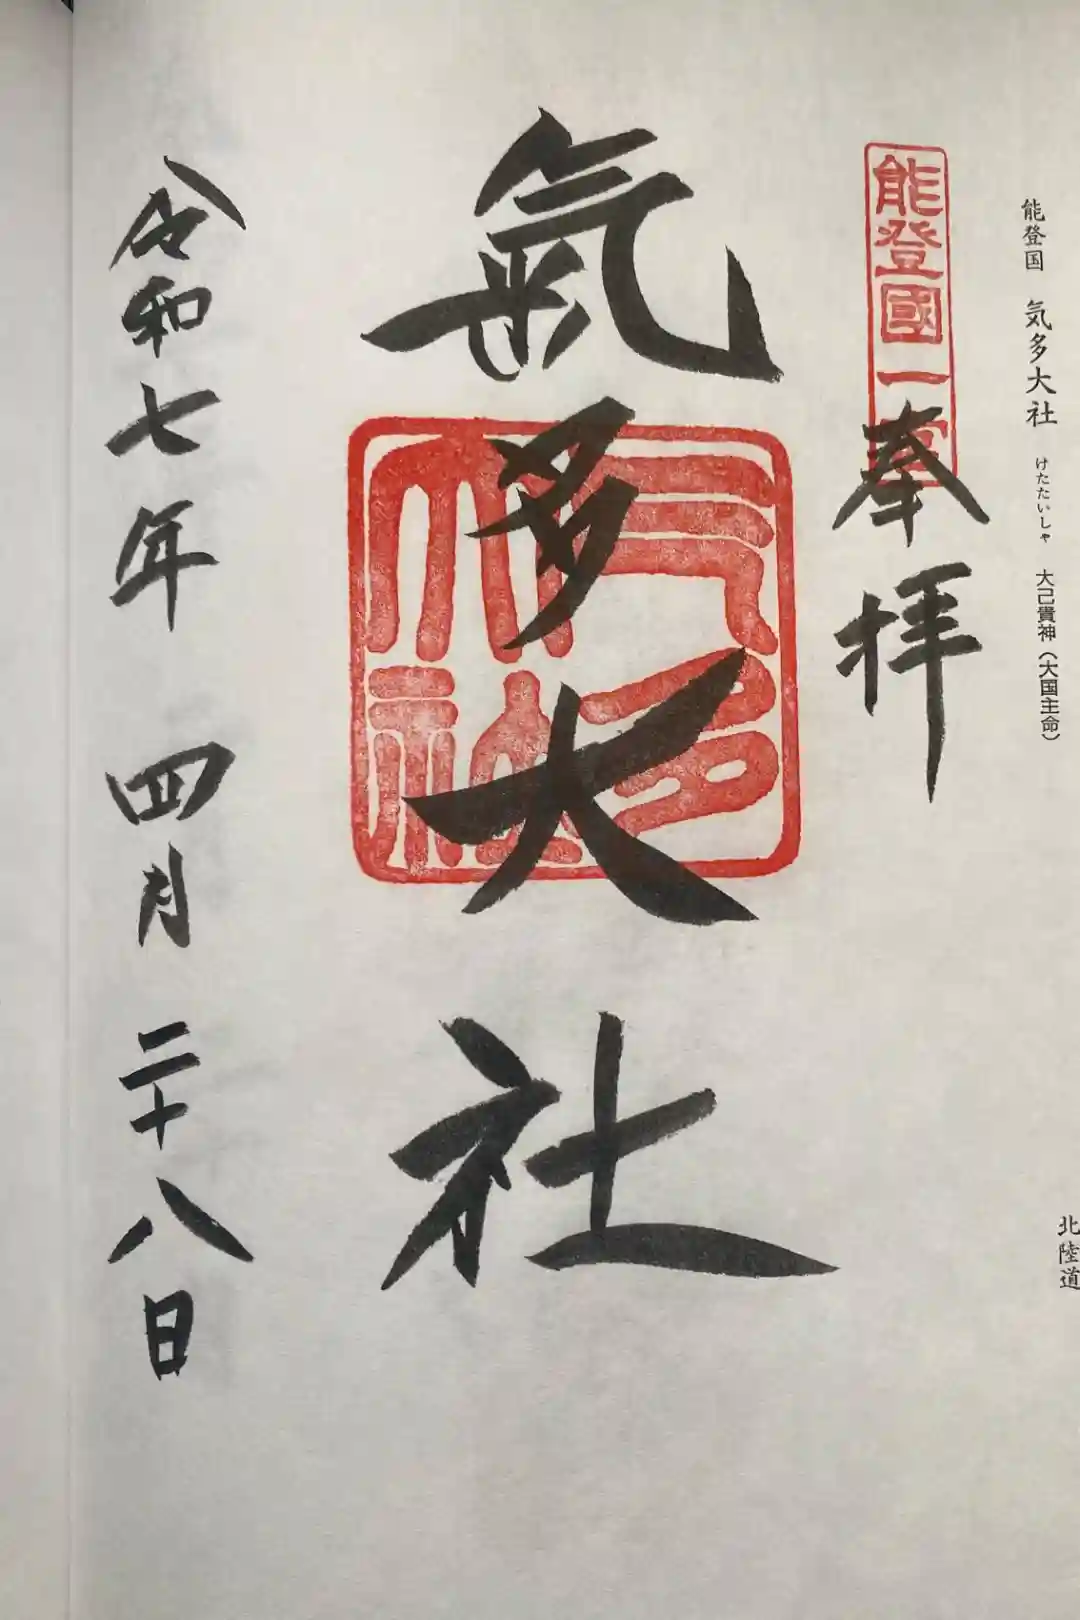 能登国 気多大社 けたたいしゃ 大己貴神（大国主命）
北陸道
能登國一宮
奉拝
氣多大社
气多大社
令和七年 四月 二十八日